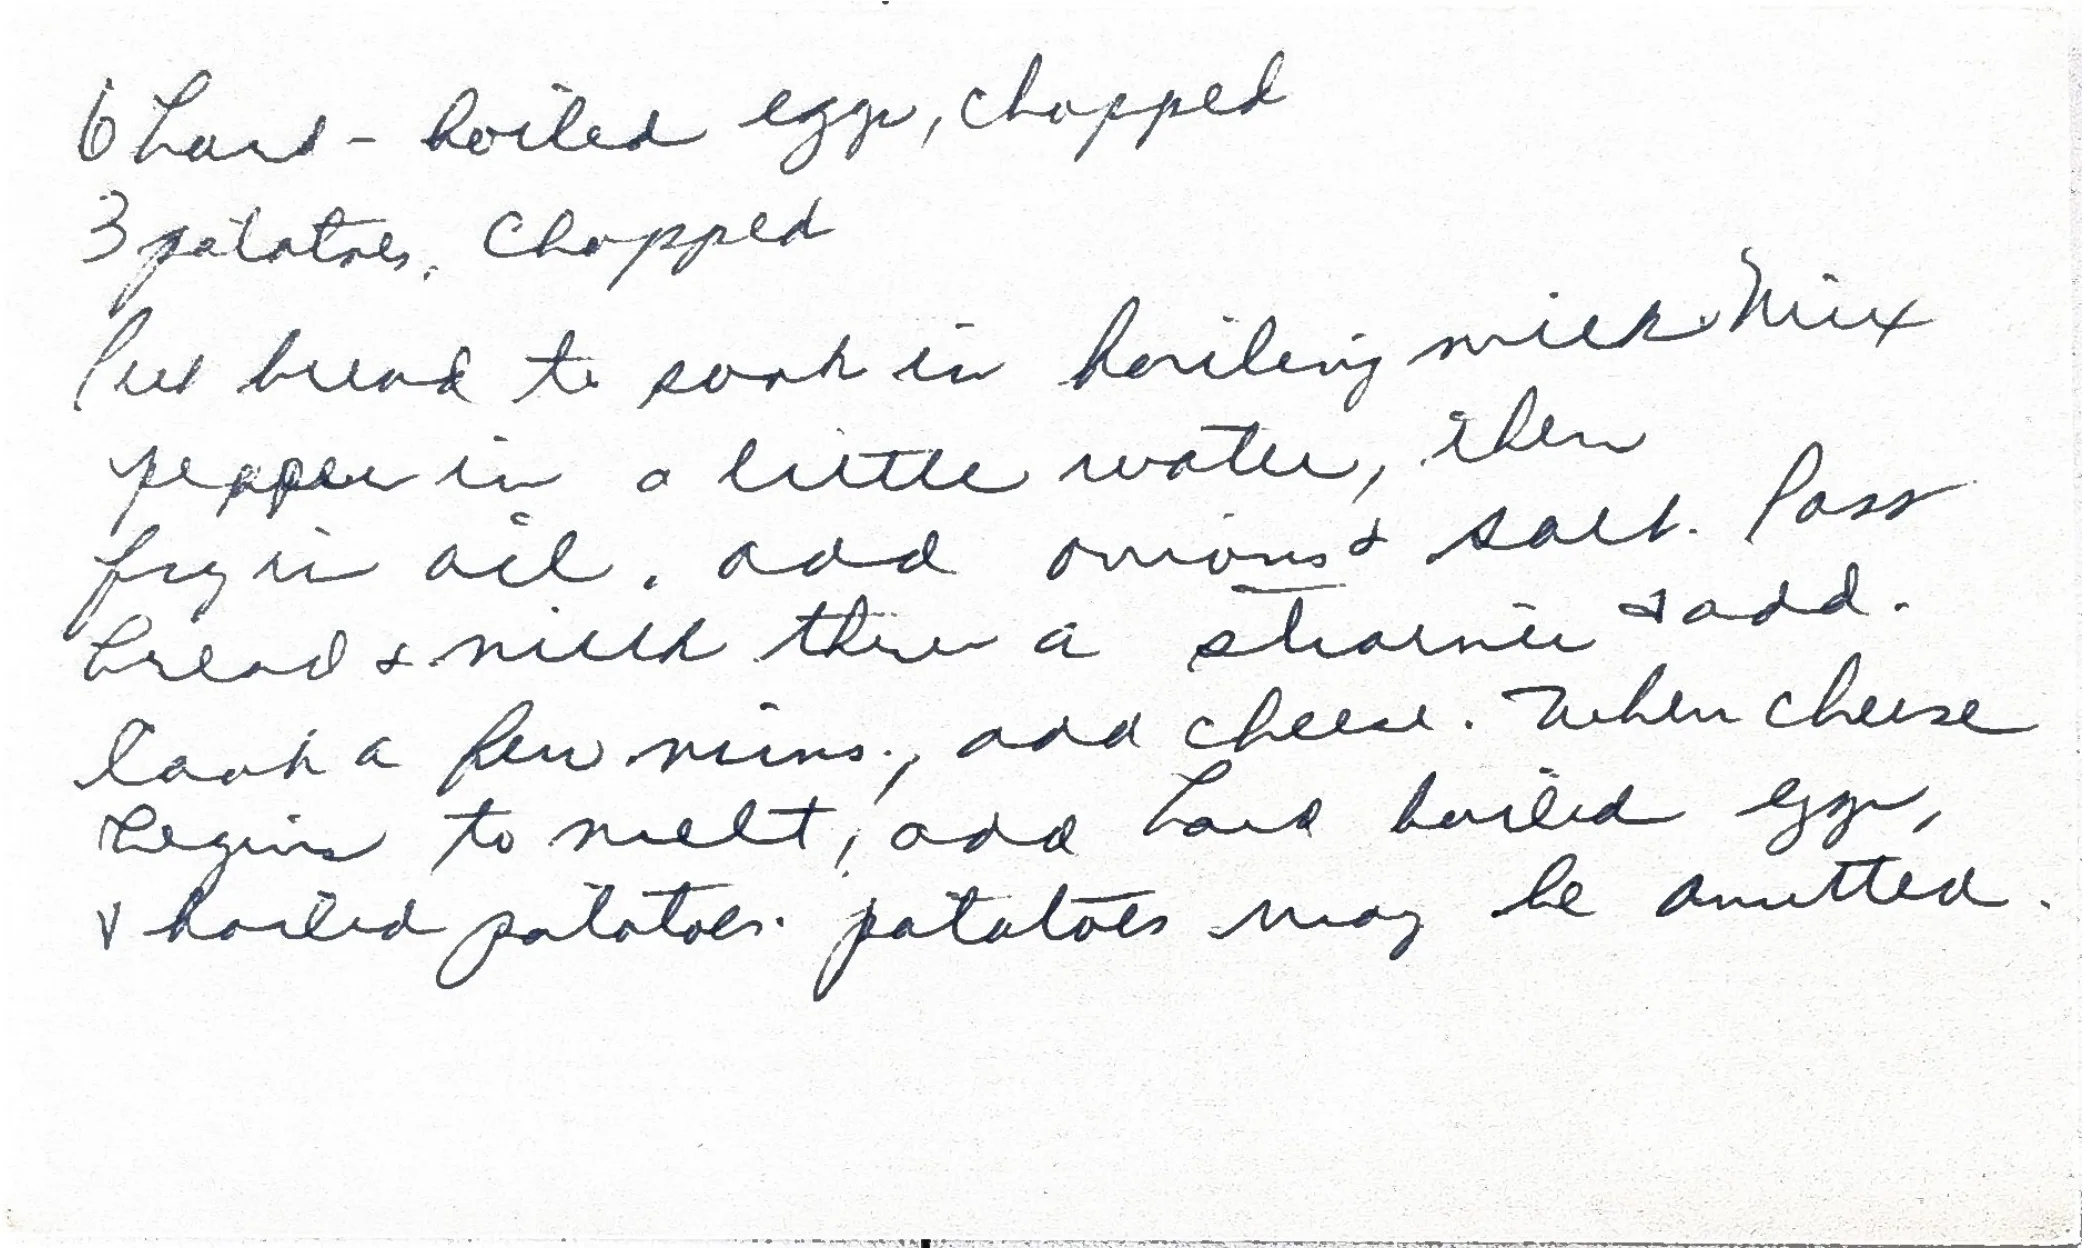 6 hard-boiled eggs, chopped
3 potatoes, chopped
Put bread to soak in boiling milk. Mix
pepper in a little water, then
fry in oil. add onions & salt. Pass
bread & milk thru a strainer & add.
Cook a few mins., add cheese. When cheese
begins to melt, add hard boiled eggs,
& boiled potatoes. potatoes may be omitted.